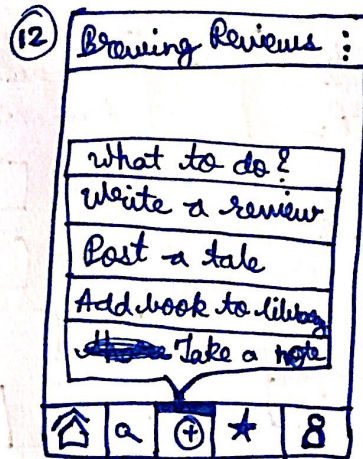 12
Brewing Reviews
What to do?
Write a review
Post a tale
Add book to library
Take a note